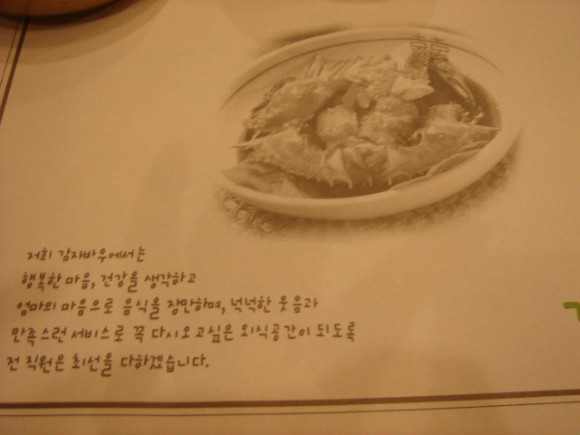 저희 감자바우에서는
행복한 마음, 건강을 생각하고
엄마의 마음으로 음식을 장만하며, 넉넉한 웃음과
만족스런 서비스로 꼭 다시오고싶은 외식공간이 되도록
전 직원은 최선을 다하겠습니다.